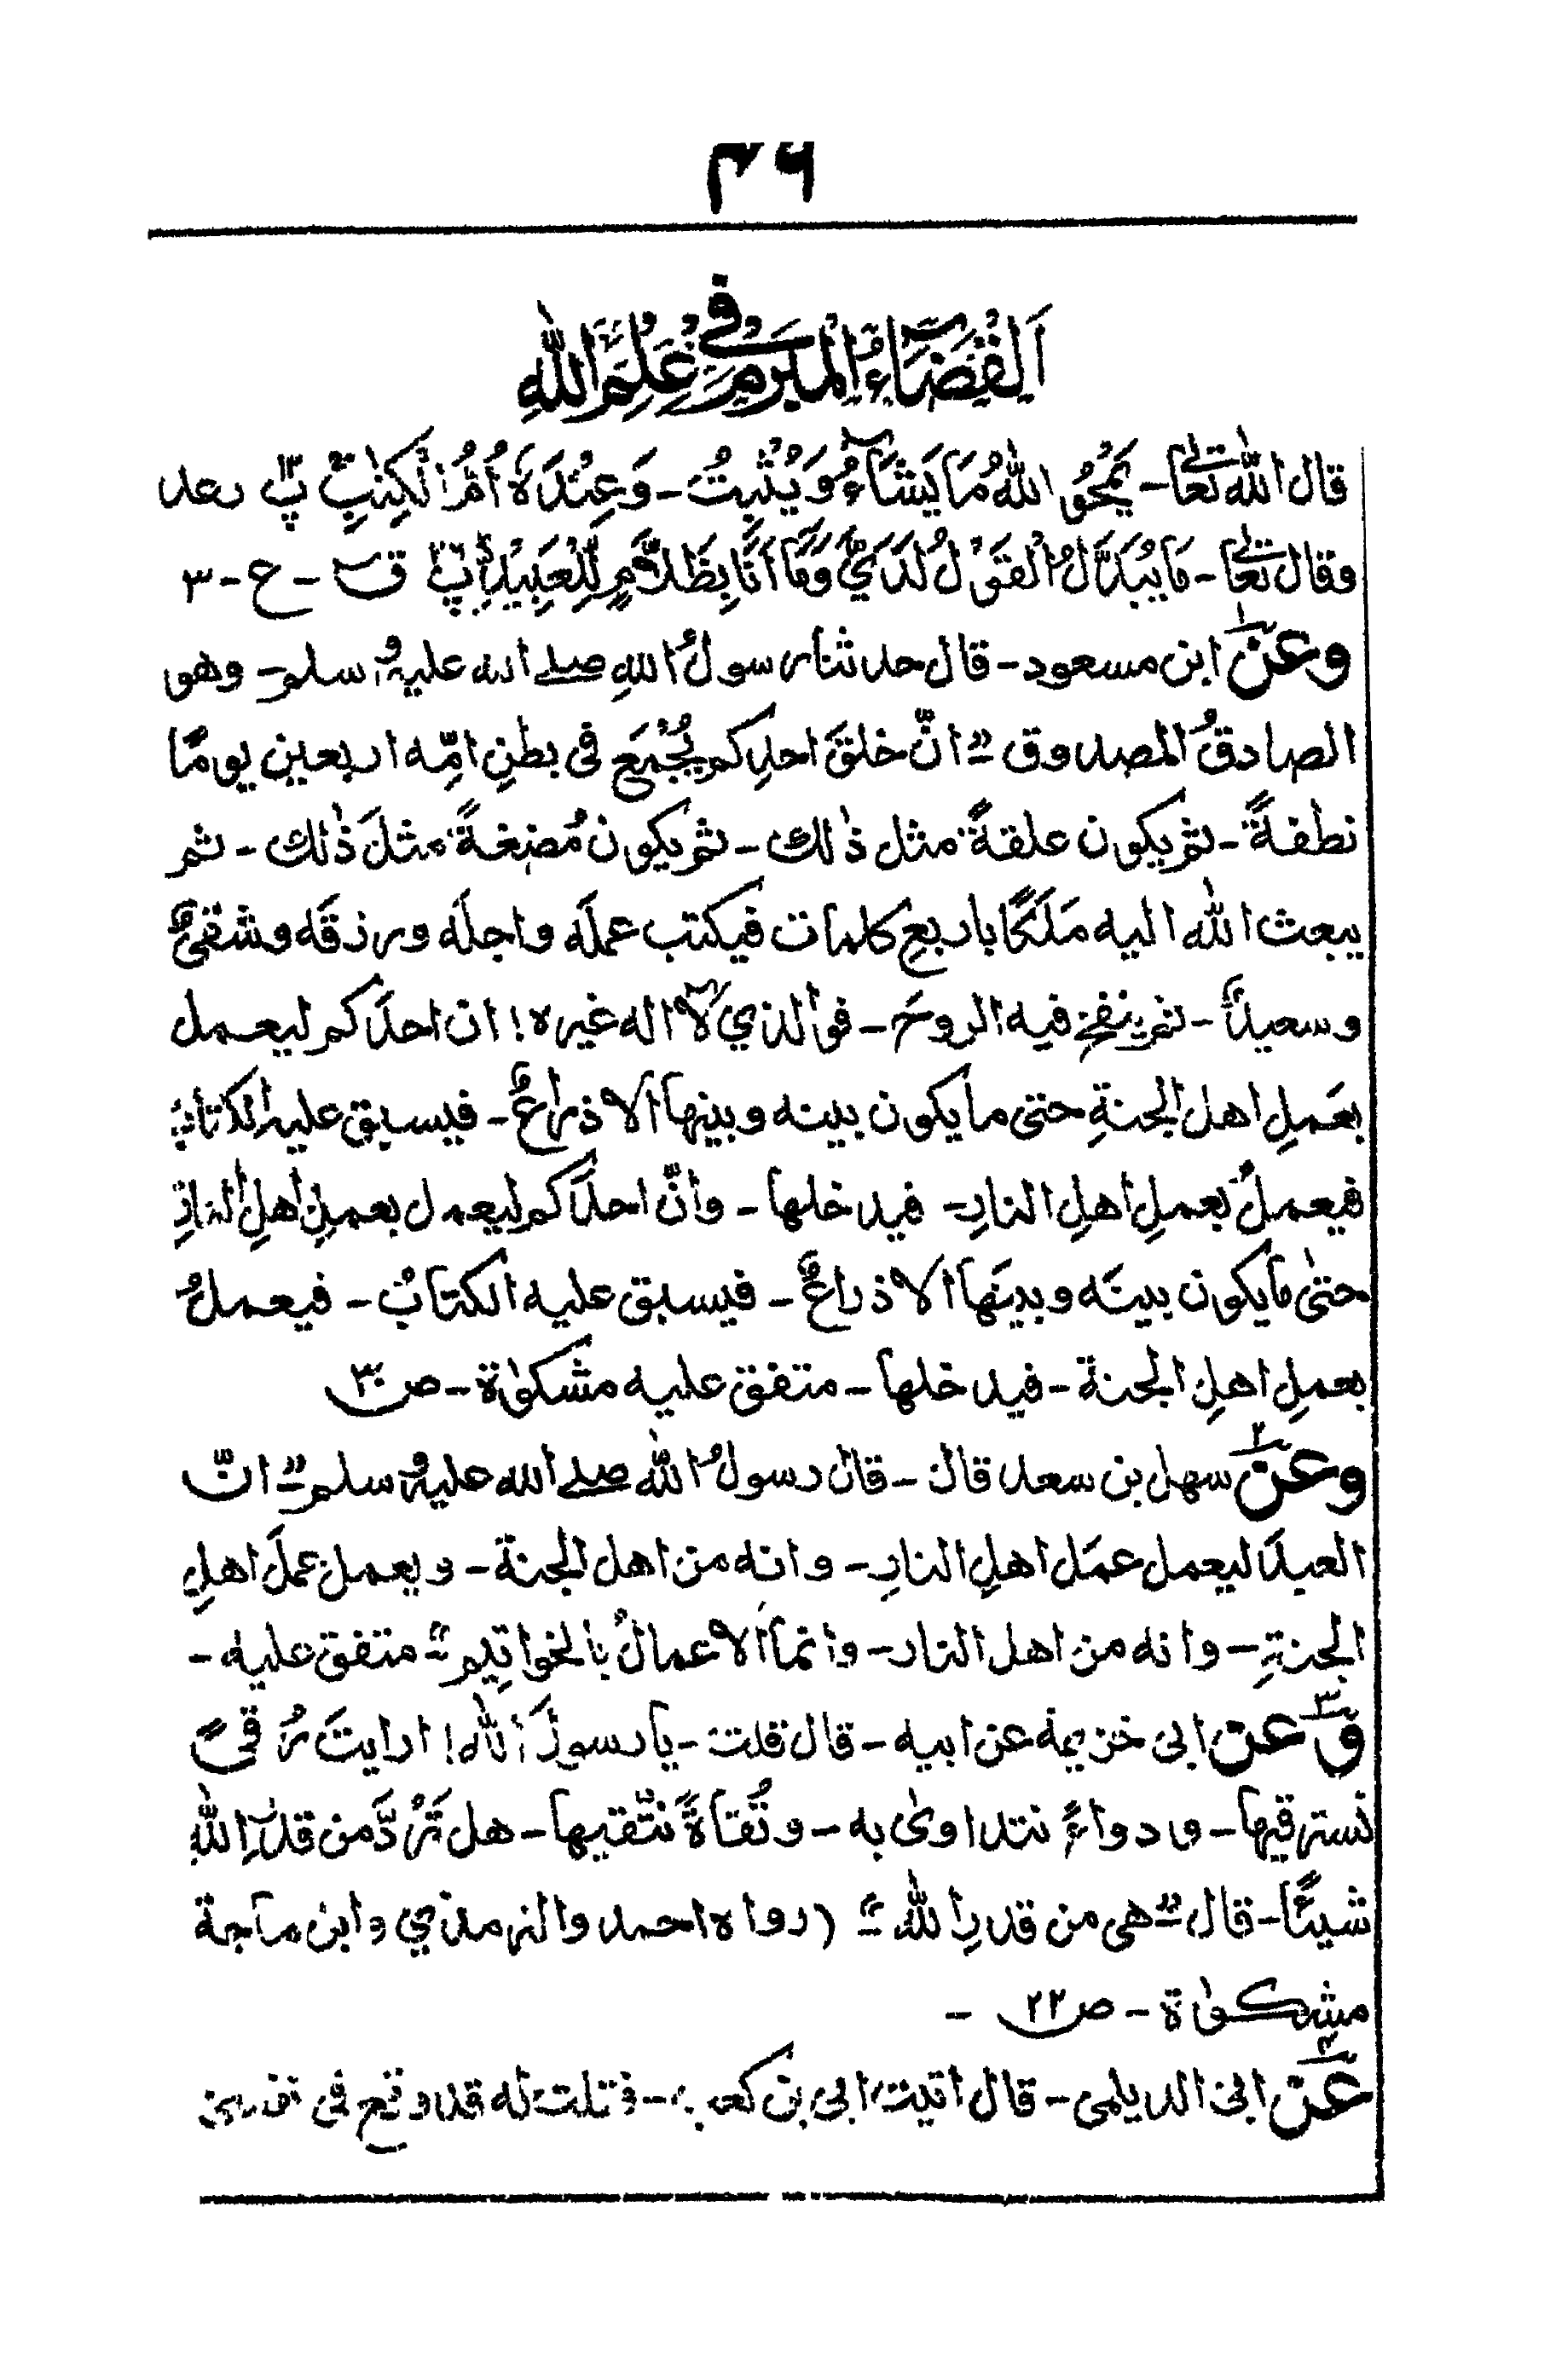 ۴۶
اَلْقَضَآءُ الْمُبْرَمُ فِىْ عِلْمِ اللّٰهِ
قال اللّٰه تعالٰى - يَمْحُو اللّٰهُ مَا يَشَآءُ وَيُثْبِتُ - وَعِنْدَهٗ اُمُّ الْكِتٰبِ پ۱۳ رعد
وقال تعالٰى - مَا يُبَدَّلُ الْقَوْلُ لَدَيَّ وَمَا اَنَا بِظَلَّامٍ لِّلْعَبِيْدِ پ۲۶ ق - ع - ۳
وعن۱ ابن مسعود - قال حدثنا رسولُ اللهِ صلے الله عليه و سلم - وهو
الصادقُ المصدوق " انّ خلقَ احدِكم يُجْمَع فى بطنِ امِّه اربعين يومًا
نطفةً - ثم يكون علقةً مثل ذٰلك - ثم يكون مُضغةً مثلَ ذٰلك - ثم
يبعث اللّٰه اليه مَلَكًا باربعِ كلمات فيكتب عملَه واجلَه ورزقَه وشقىٌّ
وسعيدٌ - ثم ينفخ فيه الروحَ - فوالذي لآ اله غيره ! ان احدَكم ليعمل
بعَملِ اهل الجنةِ حتى ما يكون بينه وبينها الا ذراعٌ - فيسبق عليه الكتابُ
فيعملُ بعملِ اهلِ النارِ - فيدخلها - وانّ احدَكم ليعمل بعملِ اهلِ النارِ
حتىٰ ما يكون بينَه وبينَها الا ذراعٌ - فيسبق عليه الكتابُ - فيعملُ
بعملِ اهلِ الجنة - فيدخلها - متفق عليه مشكوٰة - ص۳۰
وعن۲ سهل بن سعد قال - قال رسولُ اللّٰه صلے الله عليه و سلم " انّ
العبدَ ليعمل عمَل اهلِ النارِ - وانه من اهل الجنة - ويعمل عملَ اهلِ
الجنةِ - وانه من اهل النار - وانما الاعمالُ بالخواتِيم " متفق عليه -
و۳عن ابى خزيمة عن ابيه - قال قلت - يا رسولَ اللّٰه ! ارايتَ رُقىً
نسترقيها - و دواءً نتداوىٰ به - وتُقاةً نتّقيها - هل تَرُدَّ من قدرِ اللّٰهِ
شيئًا - قال " هى من قدرِ اللّٰه " ( رواه احمد والترمذي وابن ماجة
مشكوٰة - ص۲۲ -
عن۴ ابن الديلمى - قال اتيت ابى بن كعب - فقلت له قد وقع فى نفسى